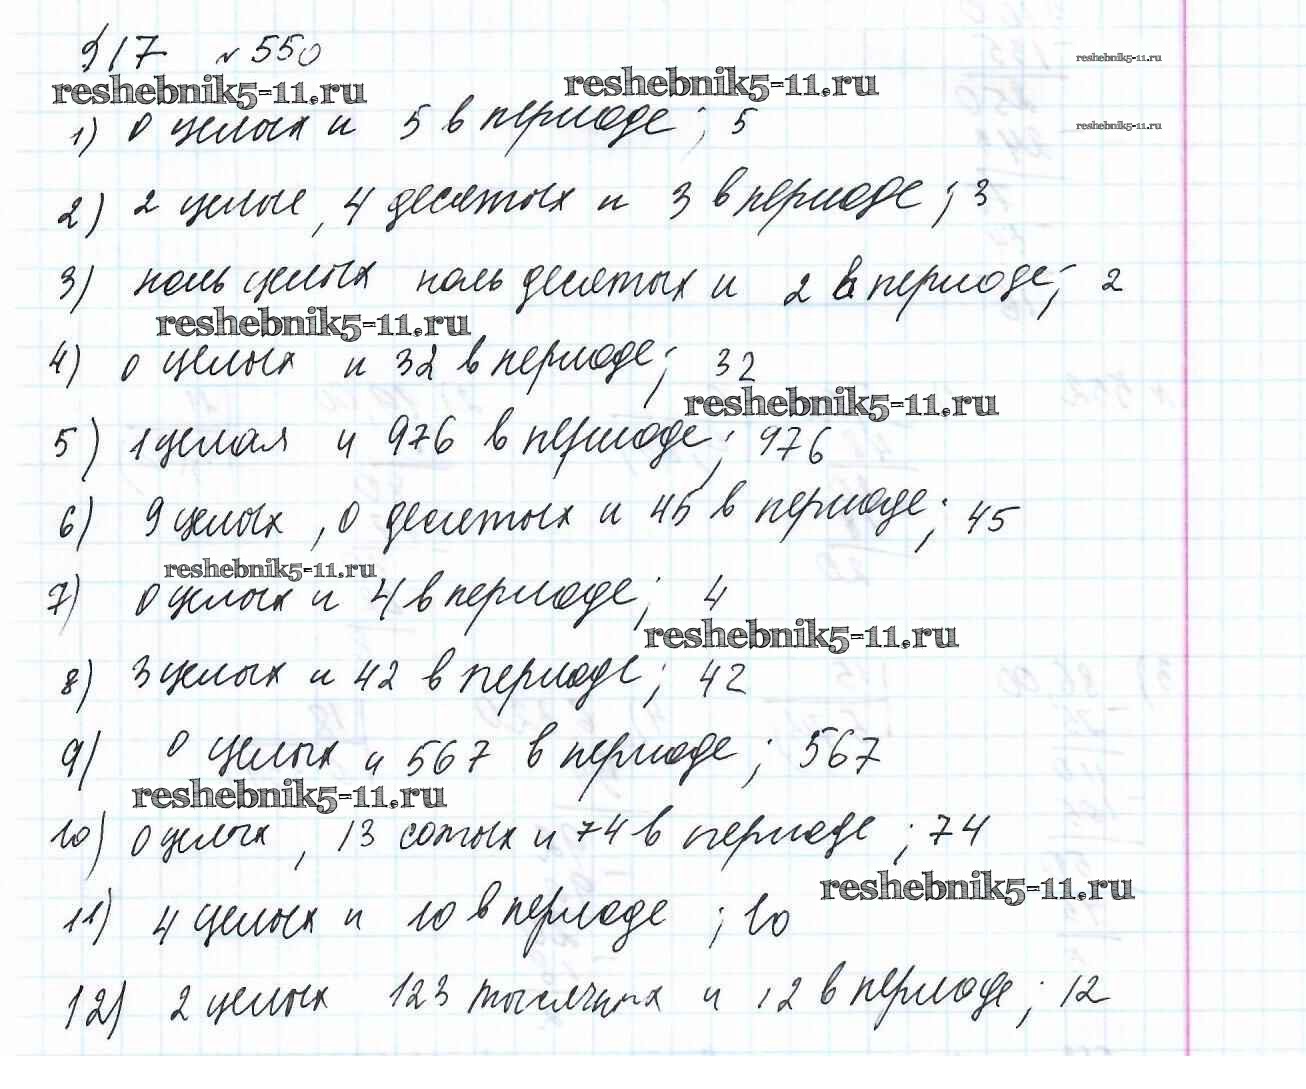 §17 №550
reshebnik5-11.ru reshebnik5-11.ru reshebnik5-11.ru
1) 0 целых и 5 в периоде; 5
reshebnik5-11.ru
2) 2 целые, 4 десятых и 3 в периоде; 3
3) ноль целых ноль десятых и 2 в периоде; 2
reshebnik5-11.ru
4) 0 целых и 32 в периоде; 32
reshebnik5-11.ru
5) 1 целая и 976 в периоде; 976
6) 9 целых, 0 десятых и 45 в периоде; 45
reshebnik5-11.ru
7) 0 целых и 4 в периоде; 4
reshebnik5-11.ru
8) 3 целых и 42 в периоде; 42
9) 0 целых и 567 в периоде; 567
reshebnik5-11.ru
10) 0 целых, 13 сотых и 74 в периоде; 74
reshebnik5-11.ru
11) 4 целых и 10 в периоде; 10
12) 2 целых 123 тысячных и 12 в периоде; 12